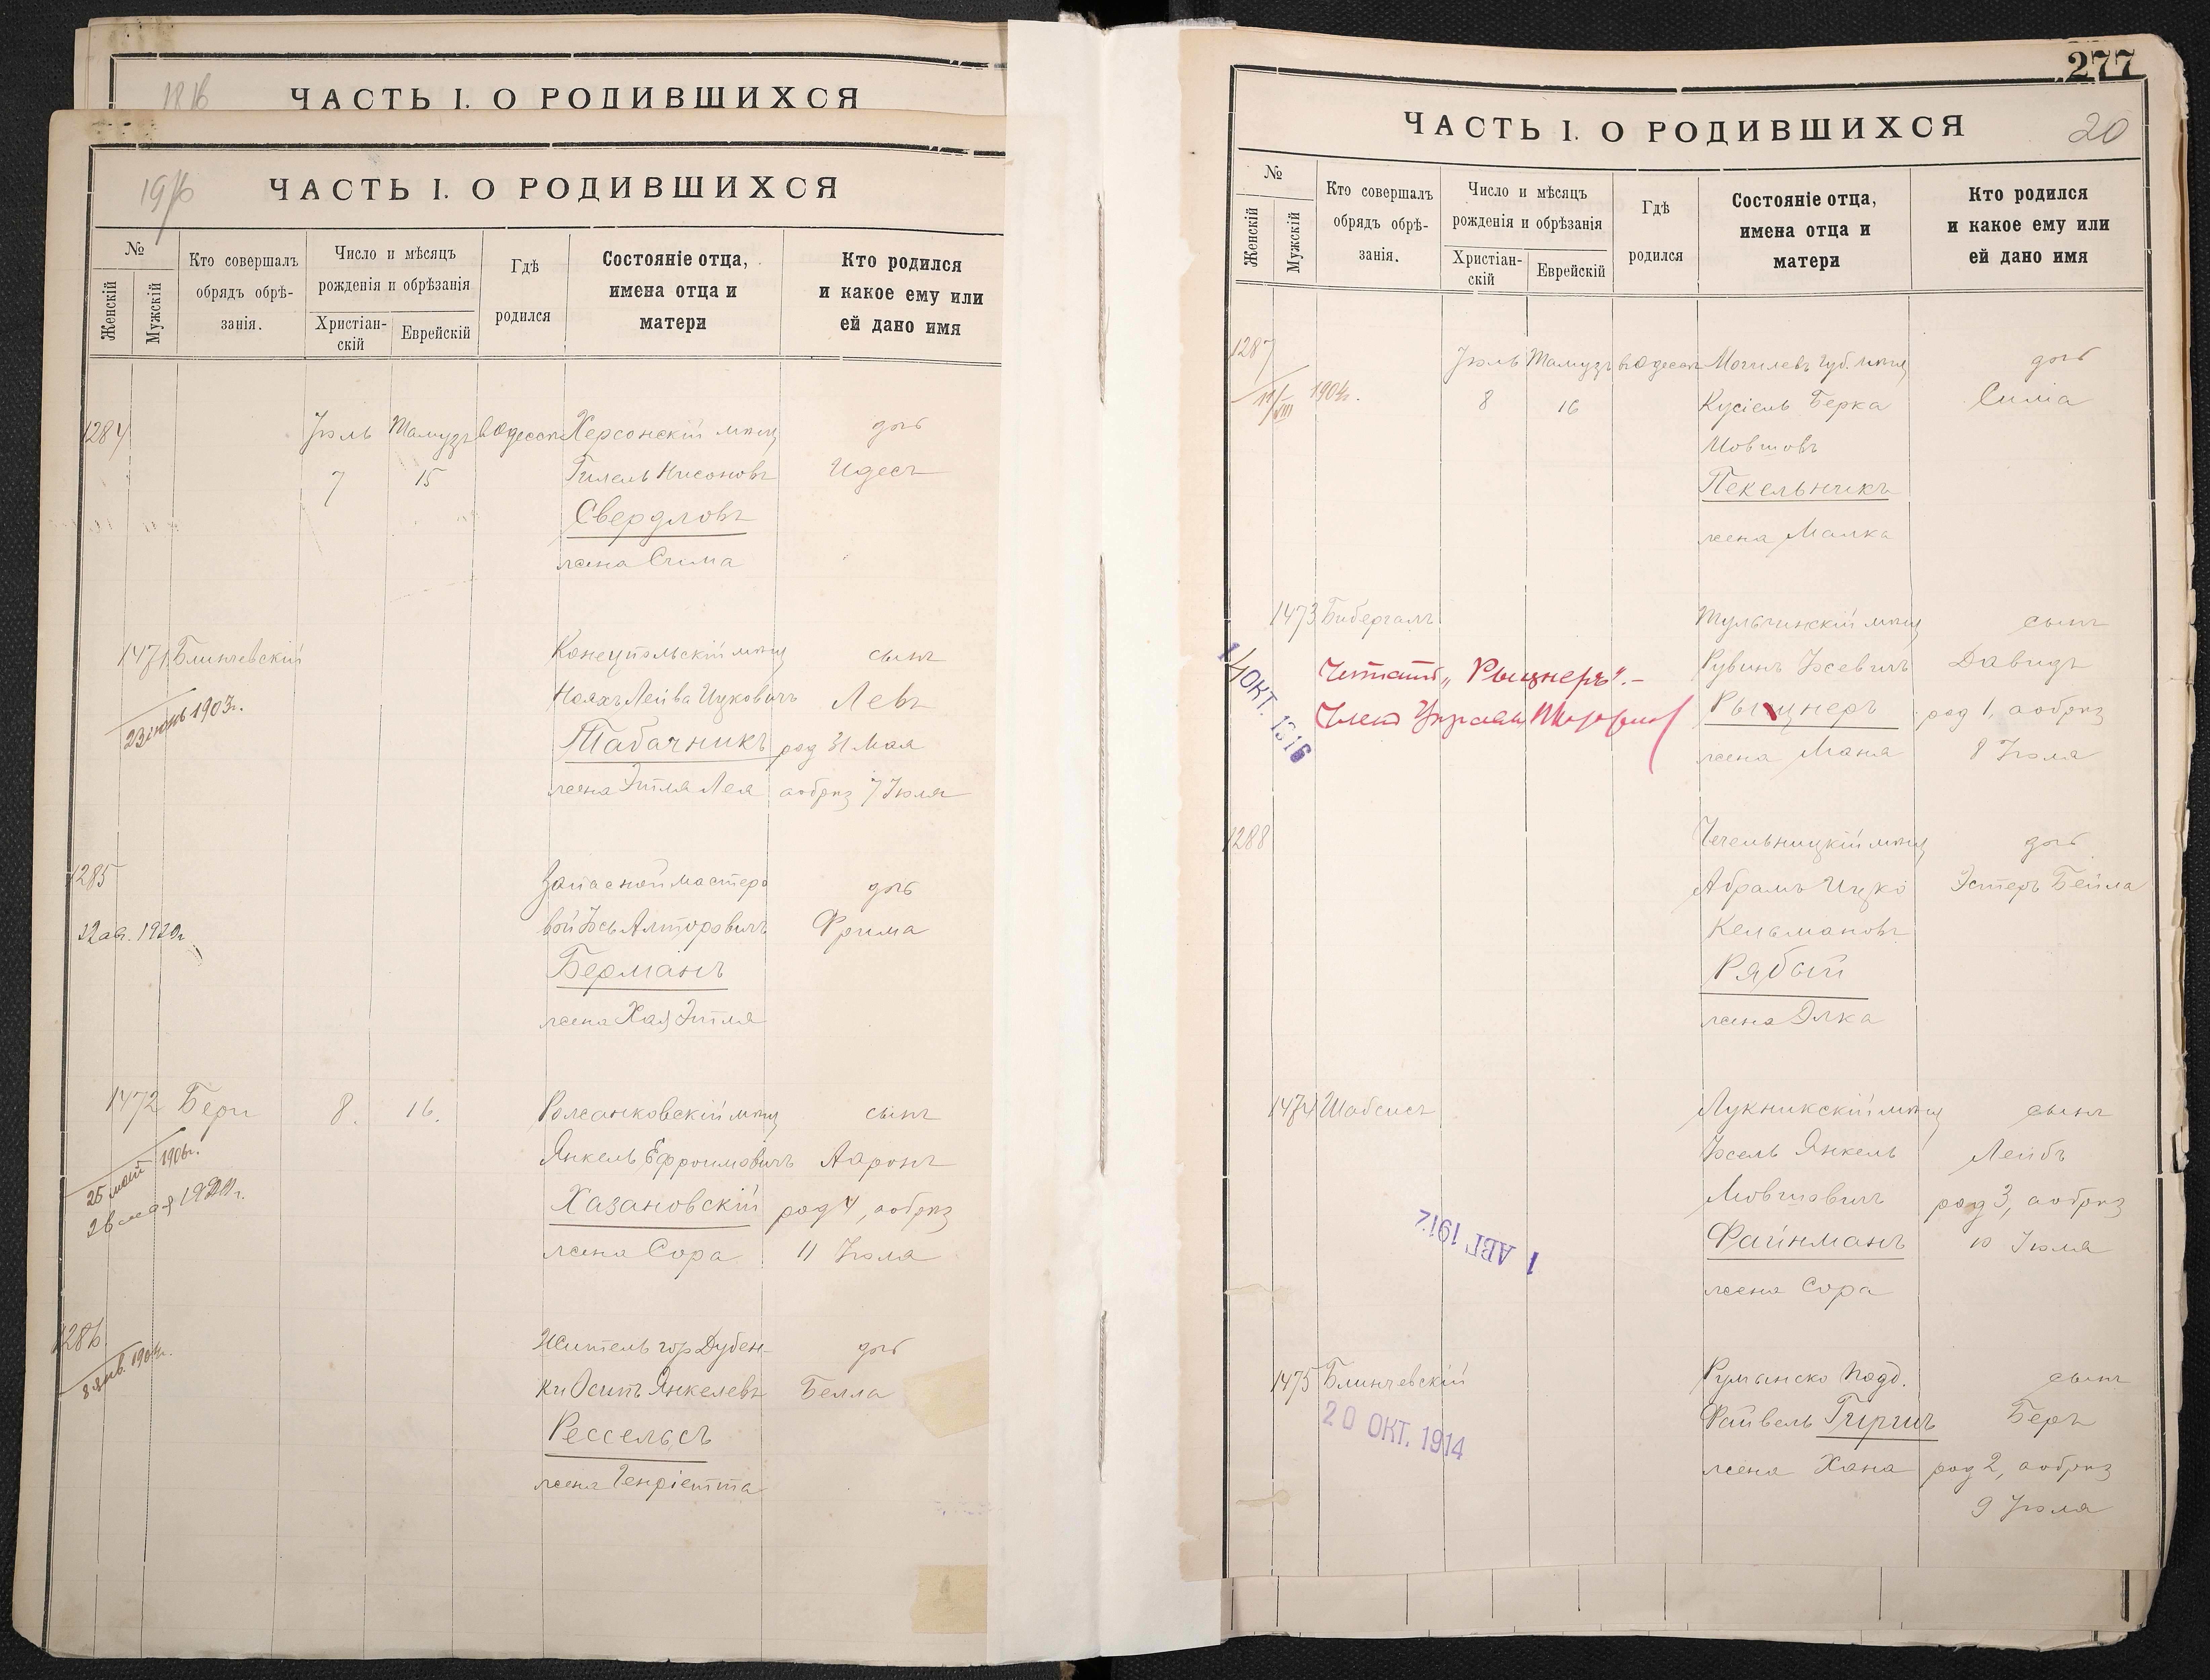 1816
ЧАСТЬ I. О РОДИВШИХСЯ
19/б
ЧАСТЬ I. О РОДИВШИХСЯ
№
Женскій
Мужскій
Кто совершалъ
обрядъ обрѣ-
занія.
Число и мѣсяцъ
рожденія и обрѣзанія
Христіан-
скій
Еврейскій
Гдѣ
родился
Состояніе отца,
имена отца и
матери
Кто родился
и какое ему или
ей дано имя
1284 Іюль Тамузъ в Одессѣ Херсонскій мѣщ дочь
7 15 Гилель Нисоновъ Идесъ
Свердловъ
жена Сима
1471 Блинчевскій Конецпольскій мѣщ сынъ
23 іюнь 1903г. Ноахъ Лейва Ицковичъ Левъ
Табачникъ род 31 Мая
жена Этля Лея а обрѣз 7 Іюля
1285 Запасной мастеро дочь
22 ав. 1920г вой Іось Алтеровичъ Фрима
Берманъ
жена Хая Этля
1472 Бери 8. 16. Рожанковскій мѣщ сынъ
25 май 1906г. Янкель Ефроимовичъ Ааронъ
26 мая Хазановскій род 4, а обрѣз
жена Сора 11 Іюля
1286 Житель гор Дубен- дочь
8 янв. 1904г. ки Осипъ Янкелевъ Белла
Рессельсъ
жена Генріетта
277
ЧАСТЬ I. О РОДИВШИХСЯ
20
№
Женскій
Мужскій
Кто совершалъ
обрядъ обрѣ-
занія.
Число и мѣсяцъ
рожденія и обрѣзанія
Христіан-
скій
Еврейскій
Гдѣ
родился
Состояніе отца,
имена отца и
матери
Кто родился
и какое ему или
ей дано имя
1287 Іюль Тамузъ в Одессѣ Могилевъ губ. мѣщ дочь
11/VIII 1904г. 8 16 Кусіель Берка Сима
Мовшовъ
Пекельникъ
жена Малка
1473 Бибергалъ Тульчинскій мѣщ сынъ
14 ОКТ. 1916
Читать „Рыцнеръ". – Рувинъ Іосевичъ Давидъ
Членъ Управы Рыцнеръ род 1, а обрѣз
жена Маня 8 Іюля
1288 Чечельницкій мѣщ дочь
Абрамъ Ицко Эстеръ Бейла
Кельмановъ
Рябой
жена Элка
1474 Шабсисъ Лукникскій мѣщ сынъ
Іосель Янкель Лейбъ
Мовшовичъ род 3, а обрѣз
1 АВГ 1912
Файнманъ 10 Іюля
жена Сора
1475 Блинчевскій Румынско подд. сынъ
20 ОКТ. 1914
Файвель Гиришъ Беръ
жена Хана род 2, а обрѣз
9 Іюля